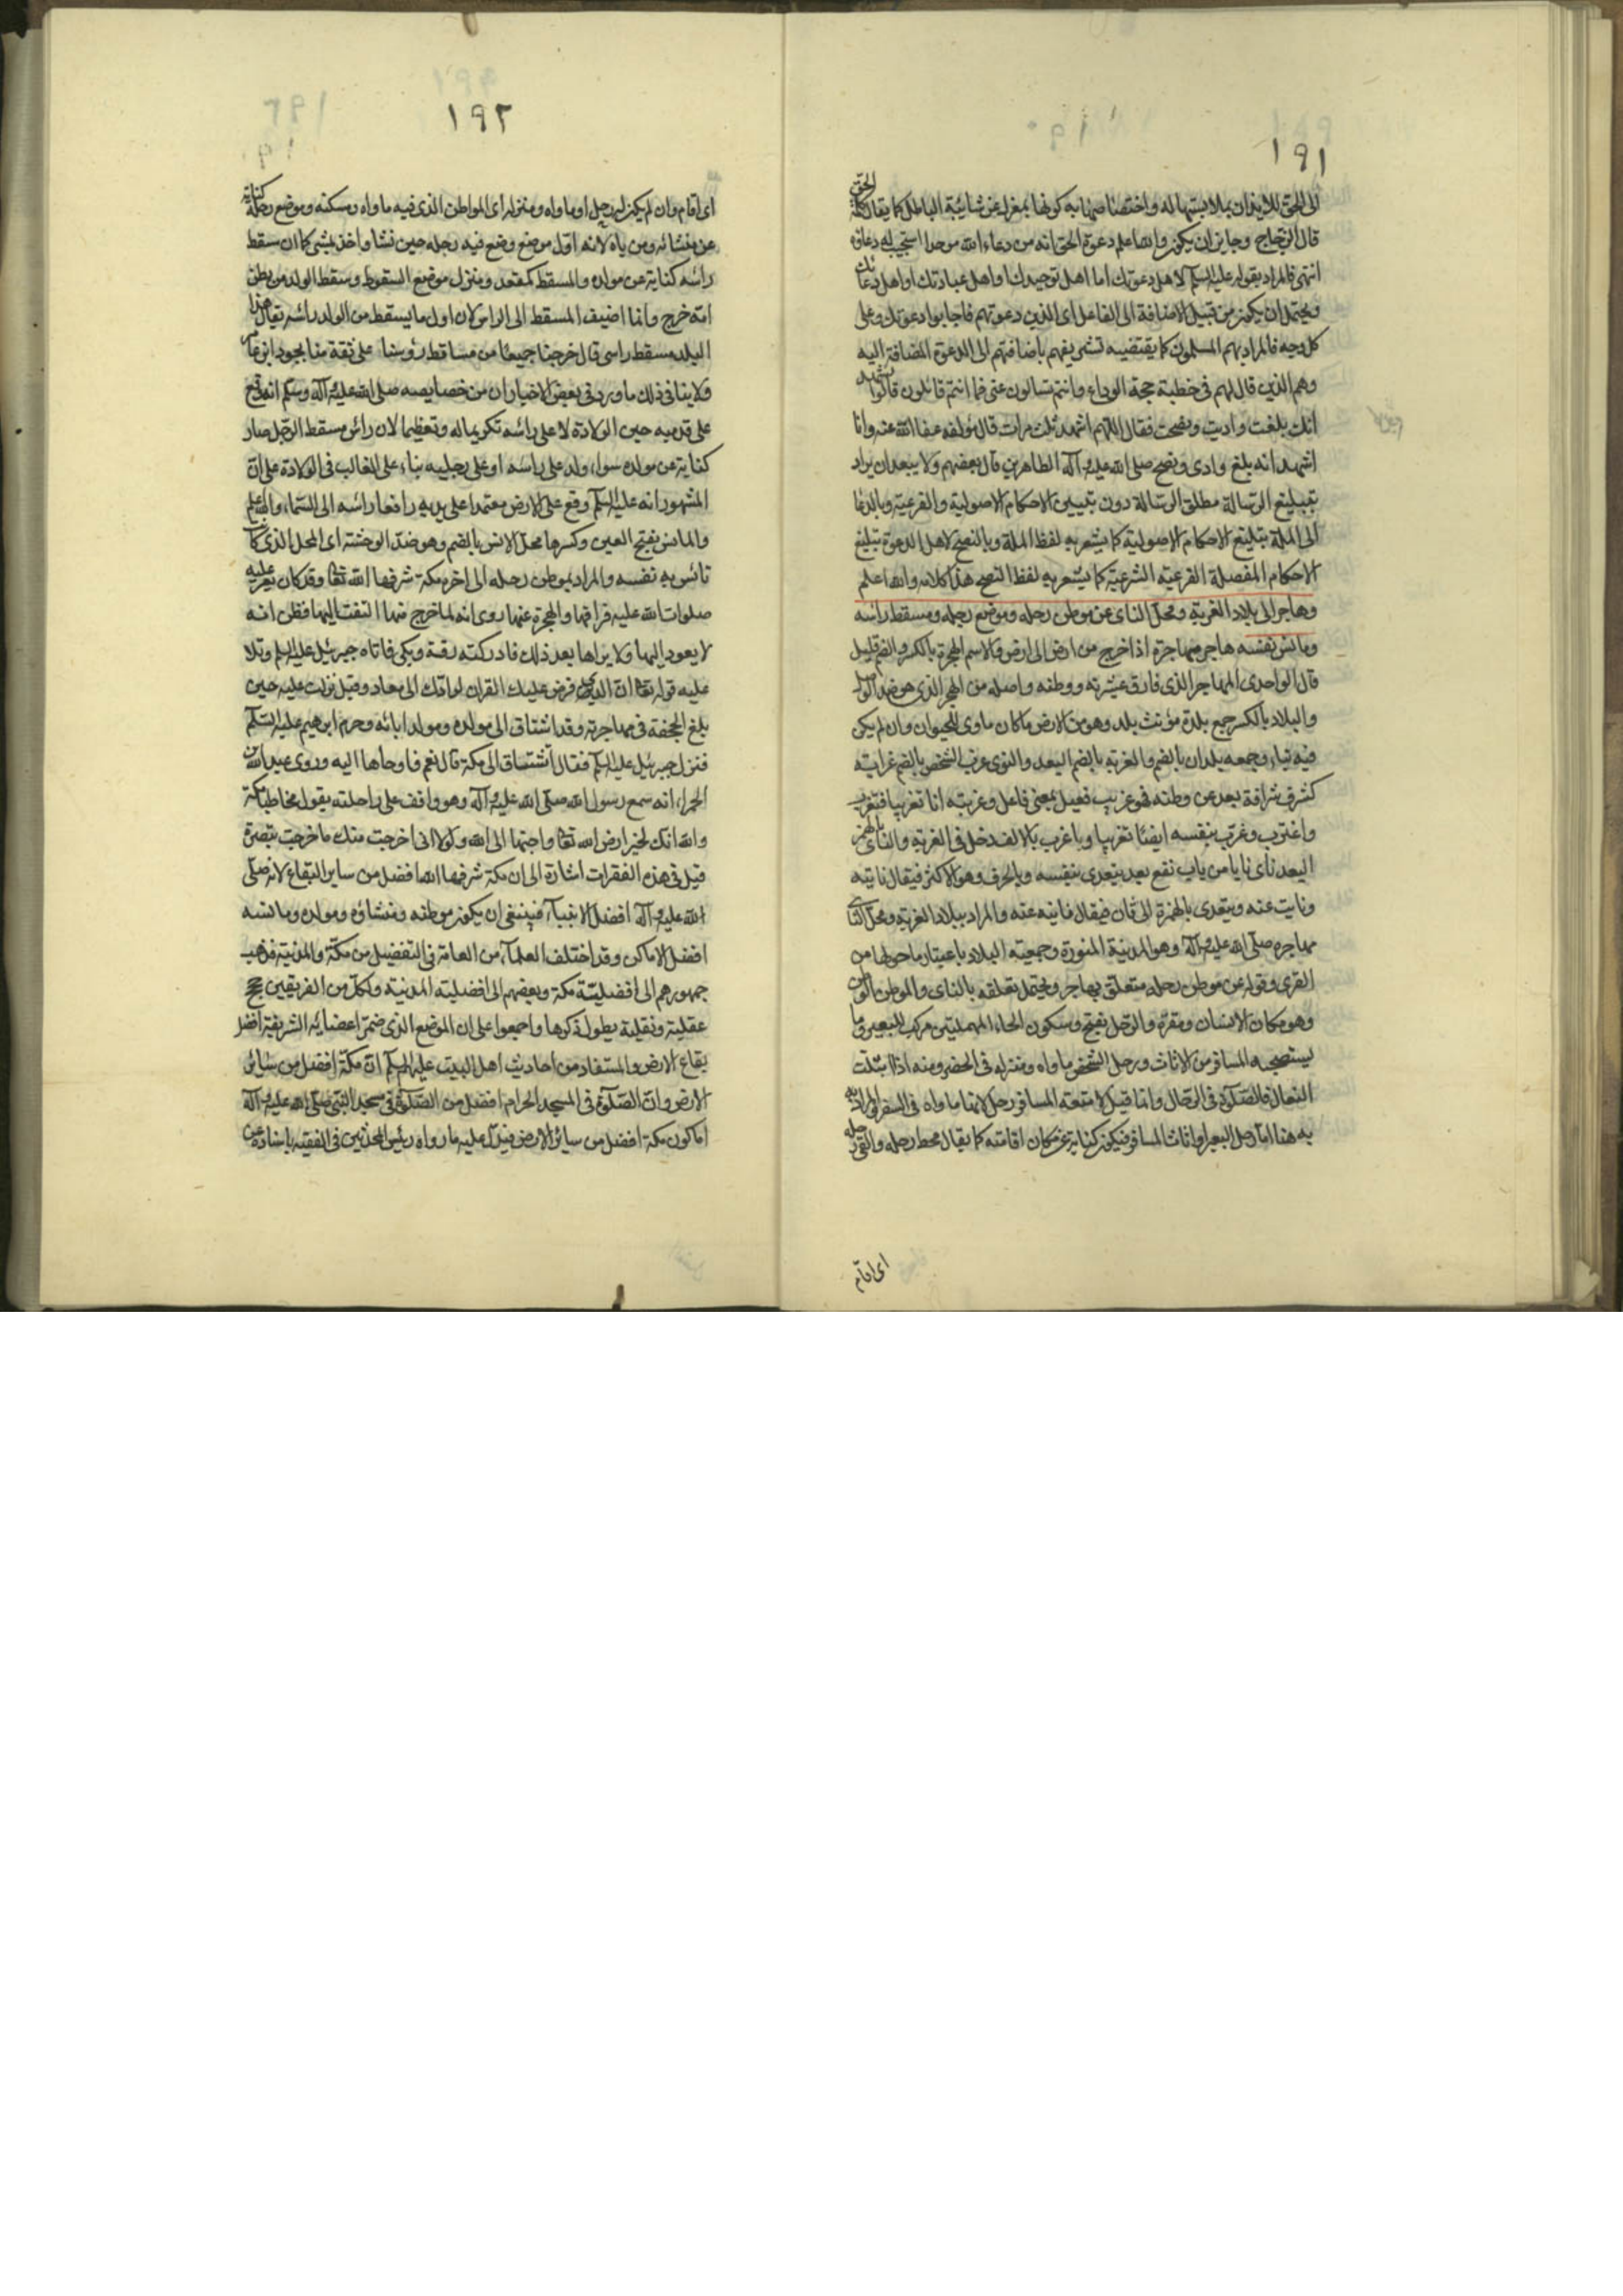 ١٩١
الى الحق للايذان بملابستها له واختصاصها به كونها بمعزل عن شائبة الباطل كما يقال كلمة الحق
قال الزجاج وجايز ان يكون والله اعلم دعوة الحق انه من دعاء الله موحدا استجيب له دعاؤه
انتهى فالمراد بقوله عليه السلم لاهل دعوتك اما اهل توحيدك او اهل عبادتك او اهل دعائك
ويحتمل ان يكون من قبيل الاضافة الى الفاعل اى الذين دعوتهم فاجابوا دعوتك وعلى
كل وجه فالمراد بهم المسلمون كما يقتضيه تشريفهم باضافتهم الى الدعوة المضافة اليه
وهم الذين قال لهم فى خطبته حجة الوداع وانتم تسالون عنى فما انتم قائلون قالوا نشهد
انك بلغت واديت ونصحت فقال اللهم اشهد ثلث مرات قال مؤلفه عفا الله عنه وانا
اشهد انه بلغ وادى ونصح صلى الله عليه وآله الطاهرين قال بعضهم ولا يبعد ان يراد
بتبليغ الرسالة مطلق الرسالة دون تبيين الاحكام الاصولية والفرعية وبالدعا
الى الملة تبليغ الاحكام الاصولية كما يشعر به لفظ الملة وبالنصح لاهل الدعوة تبليغ
الاحكام المفصلة الفرعية الشرعية كما يشعر به لفظ النصح هذا كلامه والله اعلم
وهاجر الى بلاد الغربة ومحل الناى عن موطن رحله وموضع رجله ومسقط راسه
ومانس نفسه هاجر مهاجرة اذا خرج من ارض الى ارض والاسم الهجرة بالكسر والضم قليل
قال الواحدى المهاجر الذى فارق عشيرته ووطنه واصله من الهجر الذى هو ضد الوصل
والبلاد بالكسر جمع بلدة مؤنث بلد وهو من الارض ماكان ماوى للحيوان وان لم يكن
فيه بناء وجمعه بلدان بالضم والغربة بالضم البعد والنوى غرب الشخص بالضم غرابته
كشرف شرافة بعد عن وطنه فهو غريب فعيل بمعنى فاعل وغربته انا تغريبا فتغرب
واغترب وغرب بنفسه ايضا تغريبا وباغرب بالالف دخل فى الغربة والناى بالهمز
البعد ناى نايا من باب نفع بعد يتعدى بنفسه وبالحرف وهو الاكثر فيقال نايته
ونايت عنه ويتعدى بالهمزة الى ثان فيقال فانيه عنه والمراد ببلاد الغربة ومحل الناى
مهاجره صلى الله عليه وآله وهو المدينة المنورة وجمعية البلاد باعتبار ماحولها من
القرى وقوله عن موطن رحله متعلق بهاجر ويحتمل تعلقه بالناى والموطن الوطن
وهو مكان الانسان ومقره والرحل بفتح وسكون الحاء المهملتين مركب للبعير وما
يستصحبه المسافر من الاثاث ورحل الشخص ماواه ومنزله فى الحضر ومنه اذا ابتلت
النعال فالصلوة فى الرحال وانما قيل لامتعة المسافر رحل لانها ماواه فى السفر والمراد به
به هنا اما رحل البعير او اثاث المسافر فيكون كناية عن مكان اقامته كما يقال محط رحله والقى رحله
اى اقام
١٩٢
اى اقام وان لم يكن له رحل او ماواه ومنزله اى المواطن الذى فيه ماواه ومسكنه وموضع رجله كناية
عن منشائه ومن باه لانه اول موضع وضع فيه رجله حين نشا واخذ يمشى كما ان سقط
راسه كناية عن مولده والمسقط كمقعد ومنزل موضع السقوط وسقط الولد من بطن
امه خرج وانما اضيف المسقط الى الراس لان اول مايسقط من الولد راسه يقال هذا
البلد مسقط راسى قال خرجنا جميعا من مساقط رؤسنا على ثقة منا بجود ابن عامر
ولا ينافى ذلك ماورد فى بعض الاخبار ان من خصايصه صلى الله عليه وآله وسلم انه وقع
على قدميه حين الولادة لا على راسه تكريما له وتعظيما لان راس مسقط الرجل صار
كناية عن مولده سواء ولد على راسه او على رجليه بناء على الغالب فى الولادة على ان
المشهور انه عليه السلم وقع على الارض معتمدا على يديه رافعا راسه الى السماء والله اعلم
والمانس بفتح العين وكسرها محل الانس بالضم وهو ضد الوحشة اى المحل الذى كان
تانس به نفسه والمراد بموطن رحله الى اخره مكة شرفها الله تعالى وقد كان يعز عليه
صلوات الله عليه فراقها والهجرة عنها روى انه لما خرج منها التفت اليها فظن انه
لا يعود اليها ولا يراها بعد ذلك فادركته رقة وبكى فاتاه جبرئيل عليه السلم وتلا
عليه قوله تعالى ان الذى فرض عليك القران لرادك الى معاد وقيل نزلت عليه حين
بلغ الجحفة فى مهاجرته وقد اشتاق الى مولده ومولد ابائه وحرم ابرهيم عليه السلم
فنزل جبرئيل عليه السلم فقال اتشتاق الى مكة قال نعم فاوحاها اليه وروى عبد الله بن
الحمراء انه سمع رسول الله صلى الله عليه وآله وهو واقف على راحلته يقول مخاطبا مكة
والله انك لخير ارض الله تعالى واحبها الى الله ولولا انى اخرجت منك ماخرجت تبصرة
قيل فى هذه الفقرات اشارة الى ان مكة شرفها الله افضل من ساير البقاع لانه صلى
الله عليه وآله افضل الانبياء فينبغى ان يكون موطنه ومنشاؤه ومولده ومانسه
افضل الاماكن وقد اختلف العلماء من العامة فى التفضيل من مكة والمدينة فذهب
جمهورهم الى افضلية مكة وبعضهم الى افضلية المدينة ولكل من الفريقين حجج
عقلية ونقلية يطول ذكرها واجمعوا على ان الموضع الذى ضم اعضائه الشريفة افضل
بقاع الارض والمستفاد من احاديث اهل البيت عليهم السلم ان مكة افضل من سائر
الارض وان الصلوة فى المسجد الحرام افضل من الصلوة فى مسجد النبى صلى الله عليه وآله
اما كون مكة افضل من سائر الارض فيدل عليه مارواه رئيس المحدثين فى الفقيه باسناده عن